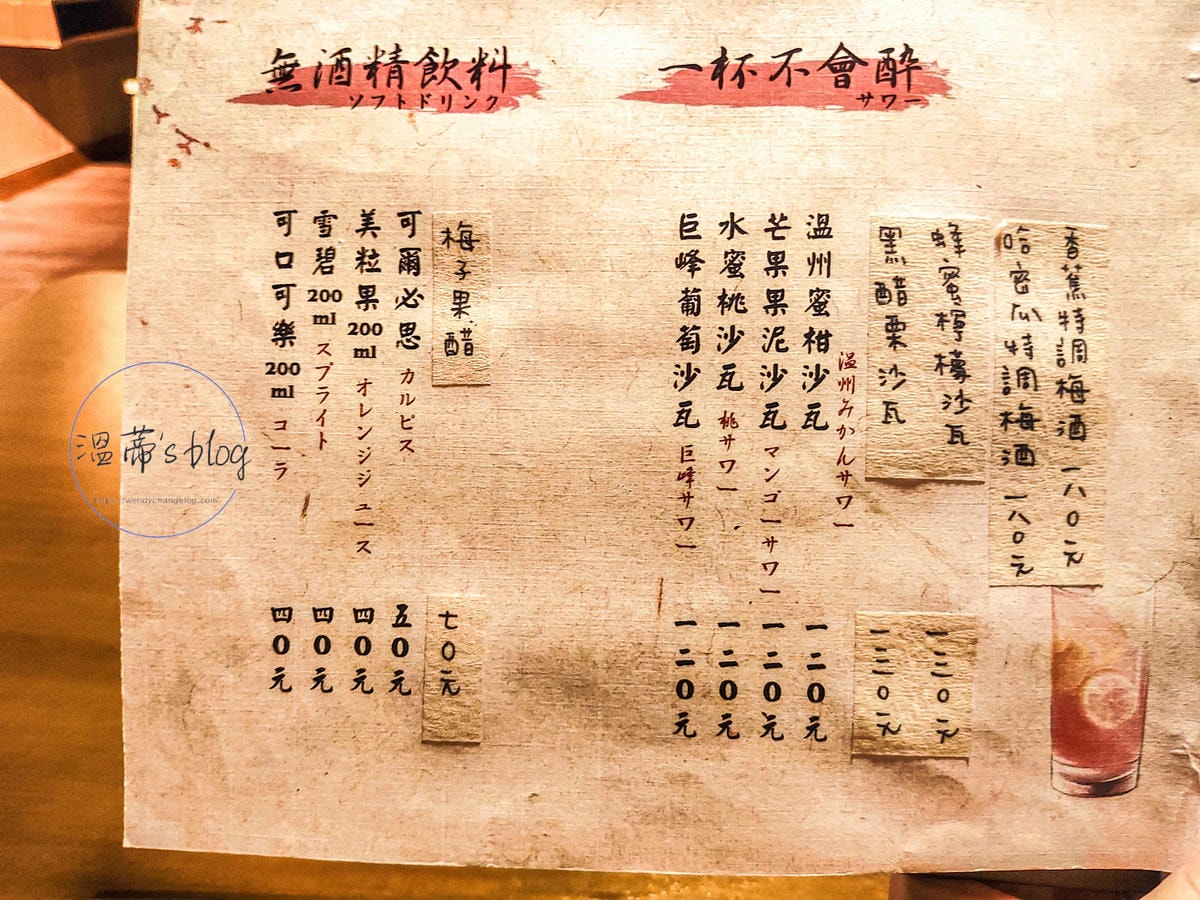 一杯不會醉
サワー
香蕉特調梅酒 一八0元
哈密瓜特調梅酒 一八0元
蜂蜜檸檬沙瓦 一二0元
黑醋栗沙瓦 一二0元
溫州蜜柑沙瓦 温州みかんサワー 一二0元
芒果果泥沙瓦 マンゴーサワー 一二0元
水蜜桃沙瓦 桃サワー 一二0元
巨峰葡萄沙瓦 巨峰サワー 一二0元
無酒精飲料
ソフトドリンク
梅子果醋 七0元
可爾必思 カルピス 五0元
美粒果200ml オレンジジュース 四0元
雪碧200ml スプライト 四0元
可口可樂200ml コーラ 四0元
溫蒂's blog
https://wendychangblog.com